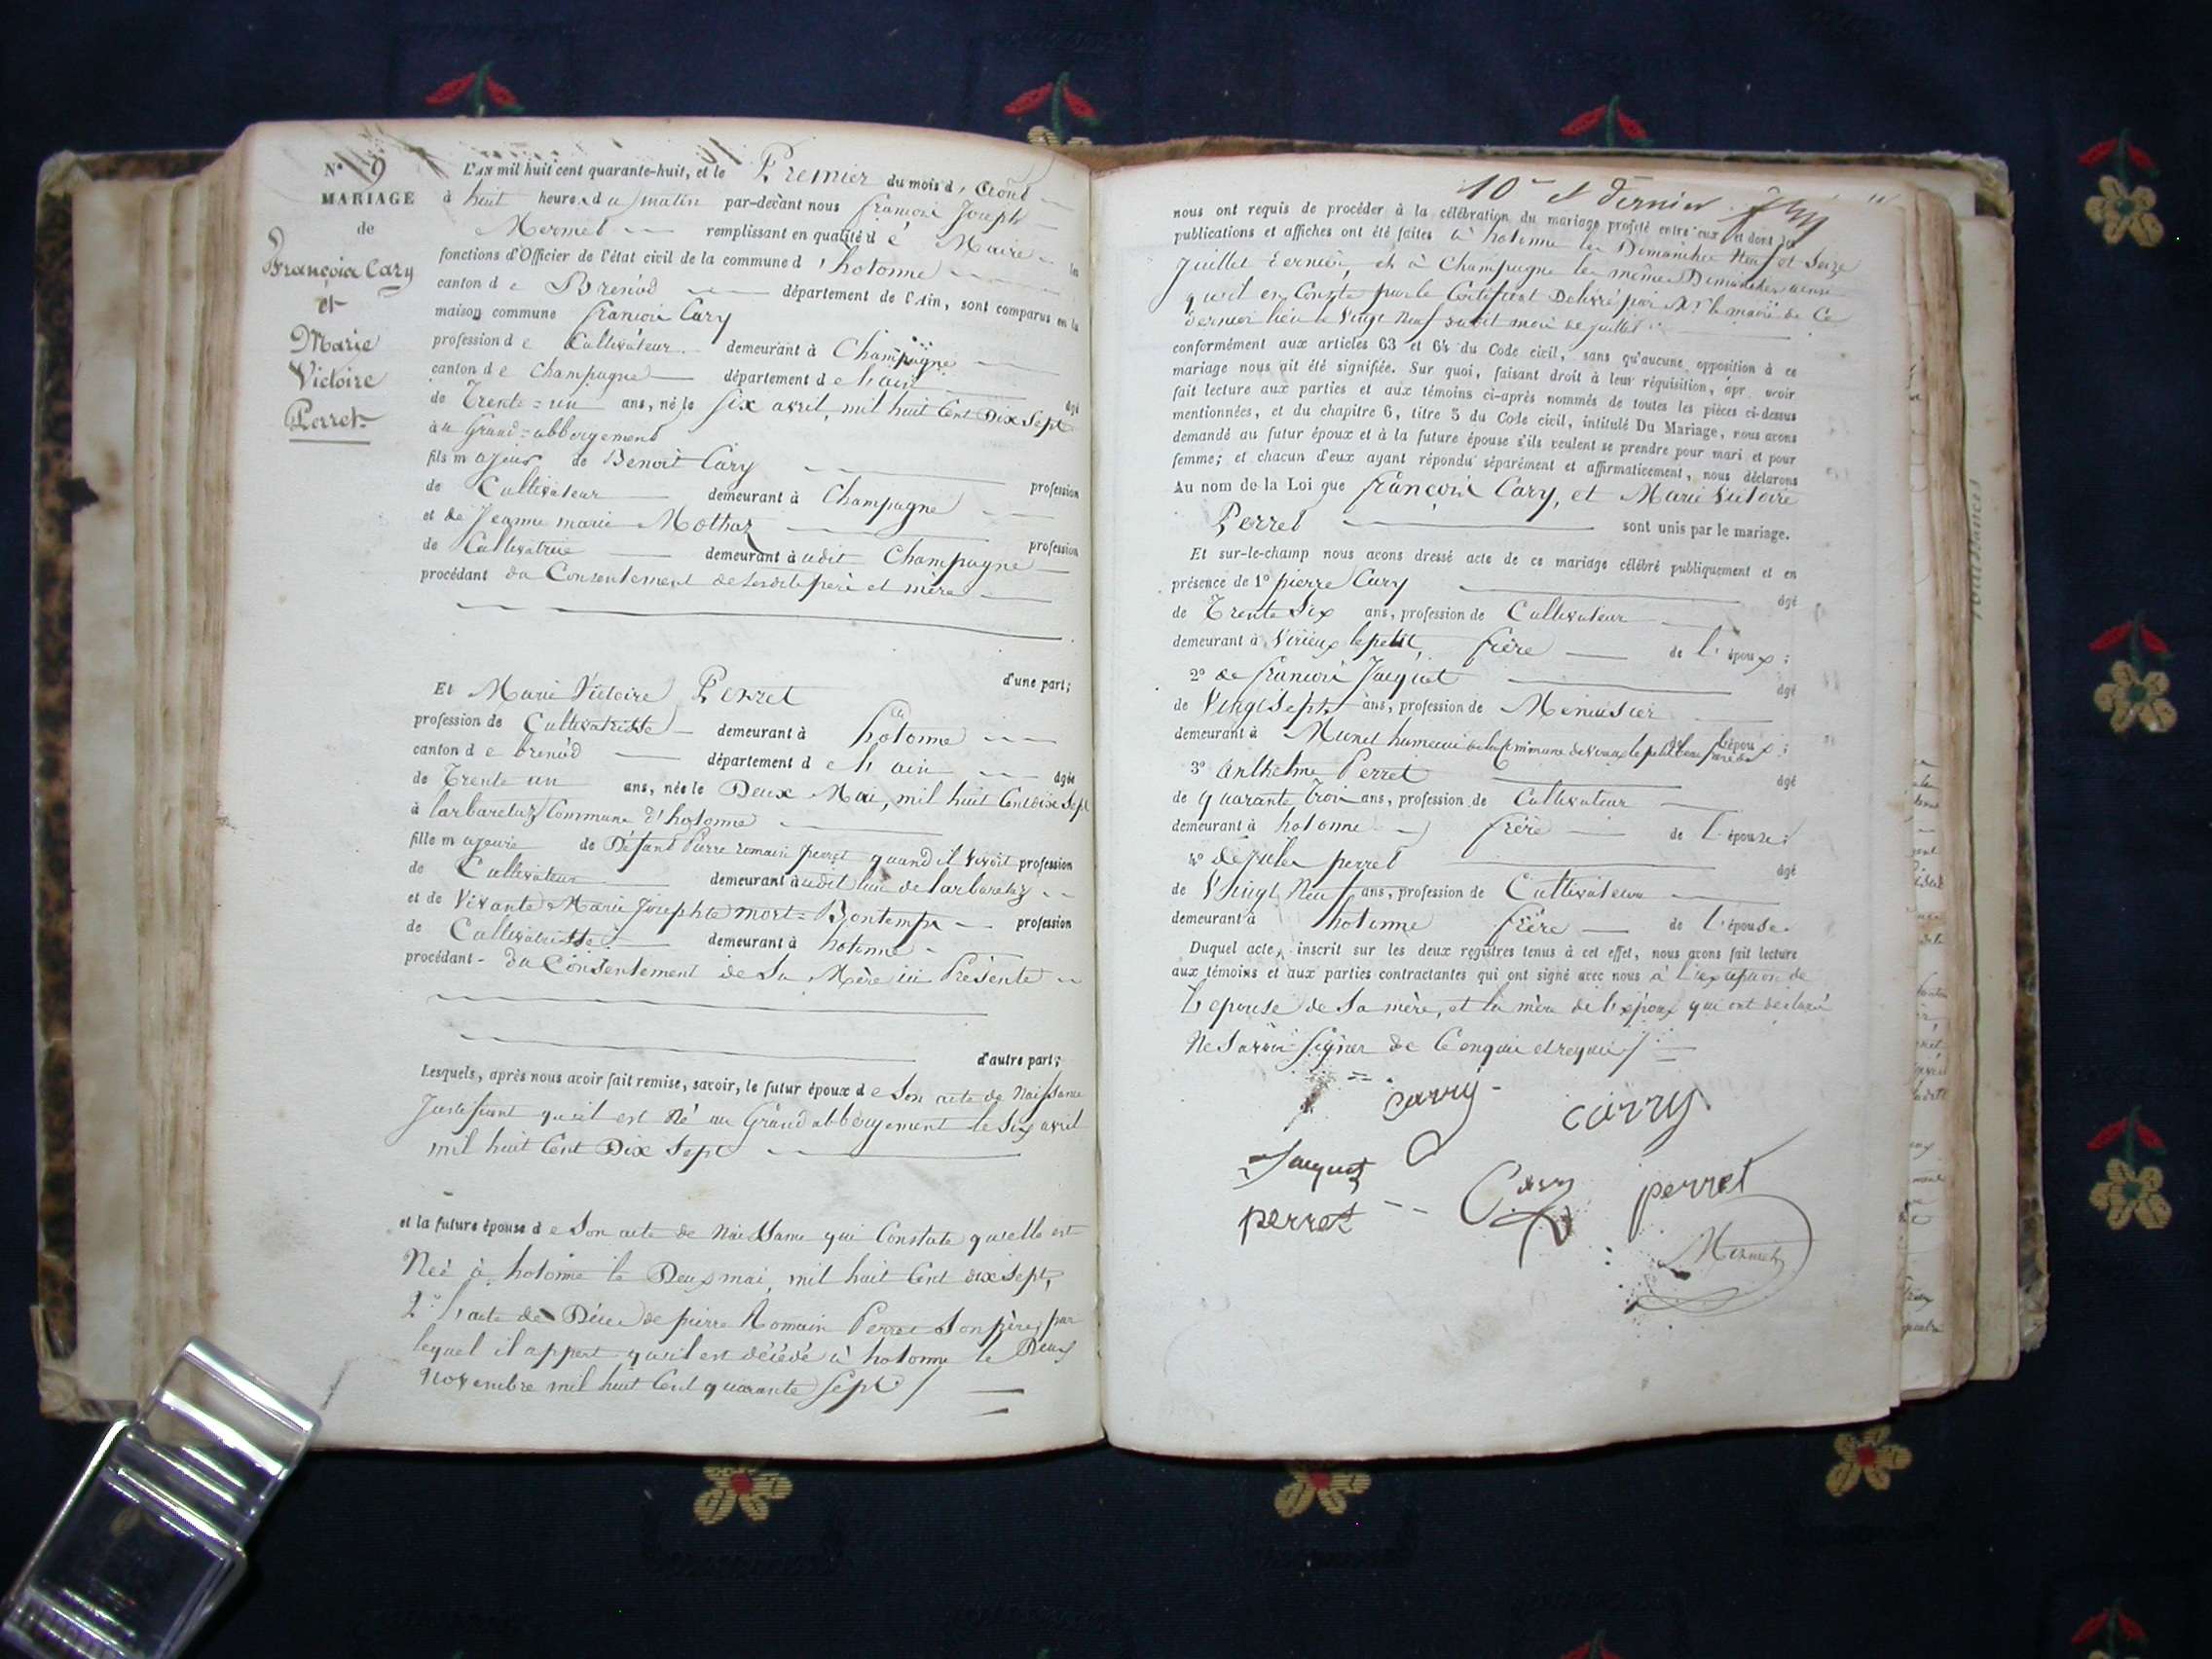 N° 9
MARIAGE
de
François Cary
et
Marie
Victoire
Perret
L'AN mil huit cent quarante-huit, et le Premier du mois d'Août
à huit heures du matin par-devant nous françois Joseph
Mermet remplissant en qualité de Maire la
fonctions d'Officier de l'état civil de la commune d'hotonne
canton de Brenod département de l'Ain, sont comparus en la
maison commune françois Cary
profession de Cultivateur demeurant à Champagne
canton de Champagne département de l'ain âgé
de Trente=un ans, né le six avril, mil huit Cent Dix Sept
au Grand=abbergement
fils majeur de Benoit Cary profession
de Cultivateur demeurant à Champagne
et de Jeanne marie Mothaz profession
de Cultivatrice demeurant à udit Champagne
procédant du Consentement de sesdits père et mère
d'une part;
Et Marie Victoire Perret
profession de Cultivatrisse demeurant à hotonne
canton de brenod département de l'ain âgée
de Trente un ans, née le Deux Mai, mil huit Cent dix Sept
à larbaretaz Commune d'hotonne
fille majeure de Défunt Pierre romain perret quand il vivoit profession
de Cultivateur demeurant audit lieu de larbaretaz
et de Vivante Marie Josephte mort=Bontemps profession
de Cultivatrisse demeurant à hotonne
procédant du Consentement de Sa Mère ici Présente
d'autre part;
Lesquels, après nous avoir fait remise, savoir, le futur époux de Son acte de Naissance
Justifiant qu'il est Né au Grand abbergement le Six avril
mil huit Cent Dix Sept
et la future épouse de Son acte de Naissance qui Constate qu'elle est
Née à hotonne le Deux mai, mil huit Cent dix Sept,
2° l'acte de Décès de pierre Romain Perret Son père, par
lequel il appert qu'il est décédé à hotonne le Deux
Novembre mil huit Cent quarante Sept /
10e et dernier
nous ont requis de procéder à la célébration du mariage projeté entre eux et dont les
publications et affiches ont été faites à hotonne les Dimanches Neuf et Seize
Juillet dernier, et à Champagne les mêmes Dimanches ainsi
qu'il en Conste par le Certificat Délivré par Mr le maire de Ce
dernier lieu le Vingt Neuf sudit mois de juillet
conformément aux articles 63 et 64 du Code civil, sans qu'aucune opposition à ce
mariage nous ait été signifiée. Sur quoi, faisant droit à leur réquisition, apr avoir
fait lecture aux parties et aux témoins ci-après nommés de toutes les pièces ci-dessus
mentionnées, et du chapitre 6, titre 5 du Code civil, intitulé Du Mariage, nous avons
demandé au futur époux et à la future épouse s'ils veulent se prendre pour mari et pour
femme; et chacun d'eux ayant répondu séparément et affirmativement, nous déclarons
Au nom de la Loi que françois Cary, et Marie Victoire
Perret sont unis par le mariage.
Et sur-le-champ nous avons dressé acte de ce mariage célébré publiquement et en
présence de 1° pierre Cary âgé
de Trente Six ans, profession de Cultivateur
demeurant à Virieux le petit, frère de l'époux;
2° de françois Jacquet âgé
de Vingt Sept ans, profession de Menuisier
demeurant à Munet hameau de la Commune de Virieux le petit de l'époux;
3° Anthelme Perret âgé
de quarante trois ans, profession de Cultivateur
demeurant à hotonne frère de l'épouse;
4° de jules perret âgé
de Vingt Neuf ans, profession de Cultivateur
demeurant à hotonne frère de l'épouse.
Duquel acte, inscrit sur les deux registres tenus à cet effet, nous avons fait lecture
aux témoins et aux parties contractantes qui ont signé avec nous à l'exception de
l'epouse de Sa mère, et la mère de l'époux qui ont déclaré
Ne Savoir Signer de Ce enquis et requis /
Carry
carry
Jacquet
perret
Cary
perret
Mermet